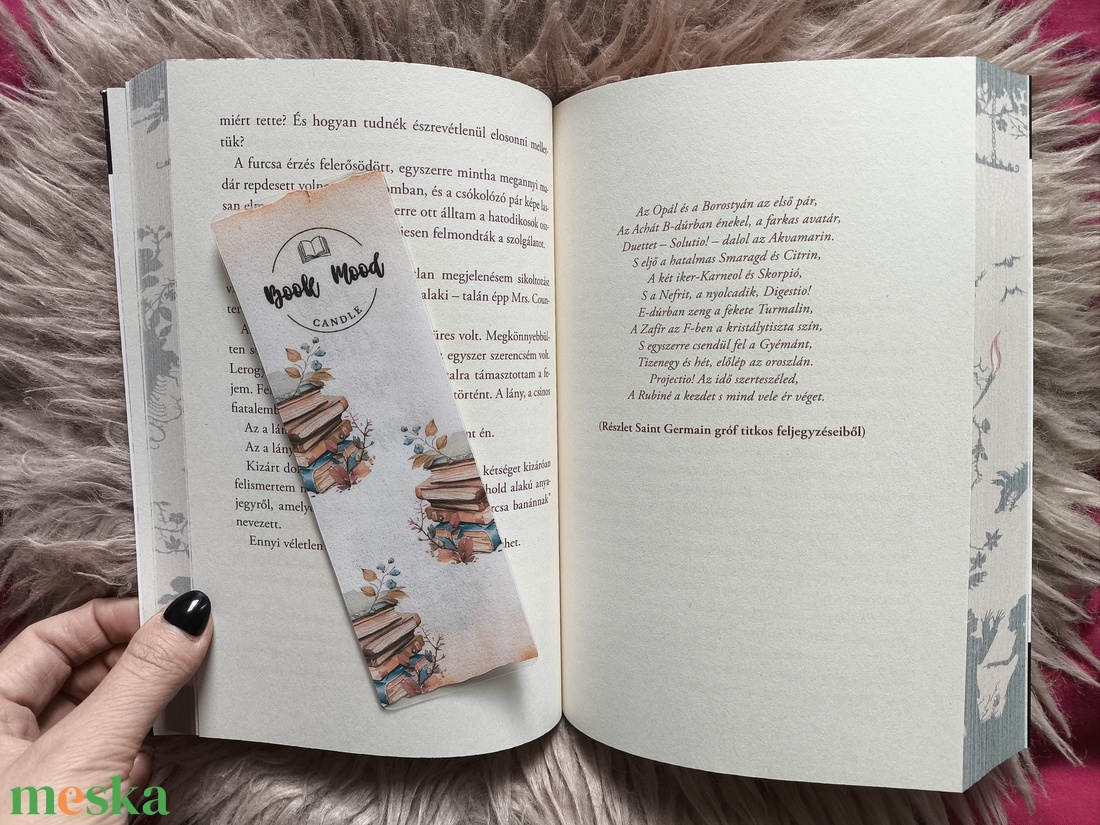 miért tette? És hogyan tudnék észrevétlenül elosonni mellet-
tük?
A furcsa érzés felerősödött, egyszerre mintha megannyi ma-
dár repdesett omban, és a csókolózó pár képe las-
san erre ott álltam a hatodikosok osz-
jesen felmondták a szolgálatot.
megjelenésem sikoltozást
alaki – talán épp Mrs. Coun-
A üres volt. Megkönnyebbül-
ten egyszer szerencsém volt.
Lerog, talra támasztottam a fe-
jem. Fe történt. A lány, a csinos
fiatalemb
Az a lán nt én.
Az a lány
Kizárt do kétséget kizáróan
felismertem hold alakú anya-
jegyről, amelye rcsa banánnak”
nevezett.
Ennyi véletlen het.
Book Mood
CANDLE
Az Opál és a Borostyán az első pár,
Az Achát B-dúrban énekel, a farkas avatár,
Duettet – Solutio! – dalol az Akvamarin.
S eljő a hatalmas Smaragd és Citrin,
A két iker-Karneol és Skorpió,
S a Nefrit, a nyolcadik, Digestio!
E-dúrban zeng a fekete Turmalin,
A Zafír az F-ben a kristálytiszta szín,
S egyszerre csendül fel a Gyémánt,
Tizenegy és hét, előlép az oroszlán.
Projectio! Az idő szerteszéled,
A Rubiné a kezdet s mind vele ér véget.
(Részlet Saint Germain gróf titkos feljegyzéseiből)
meska